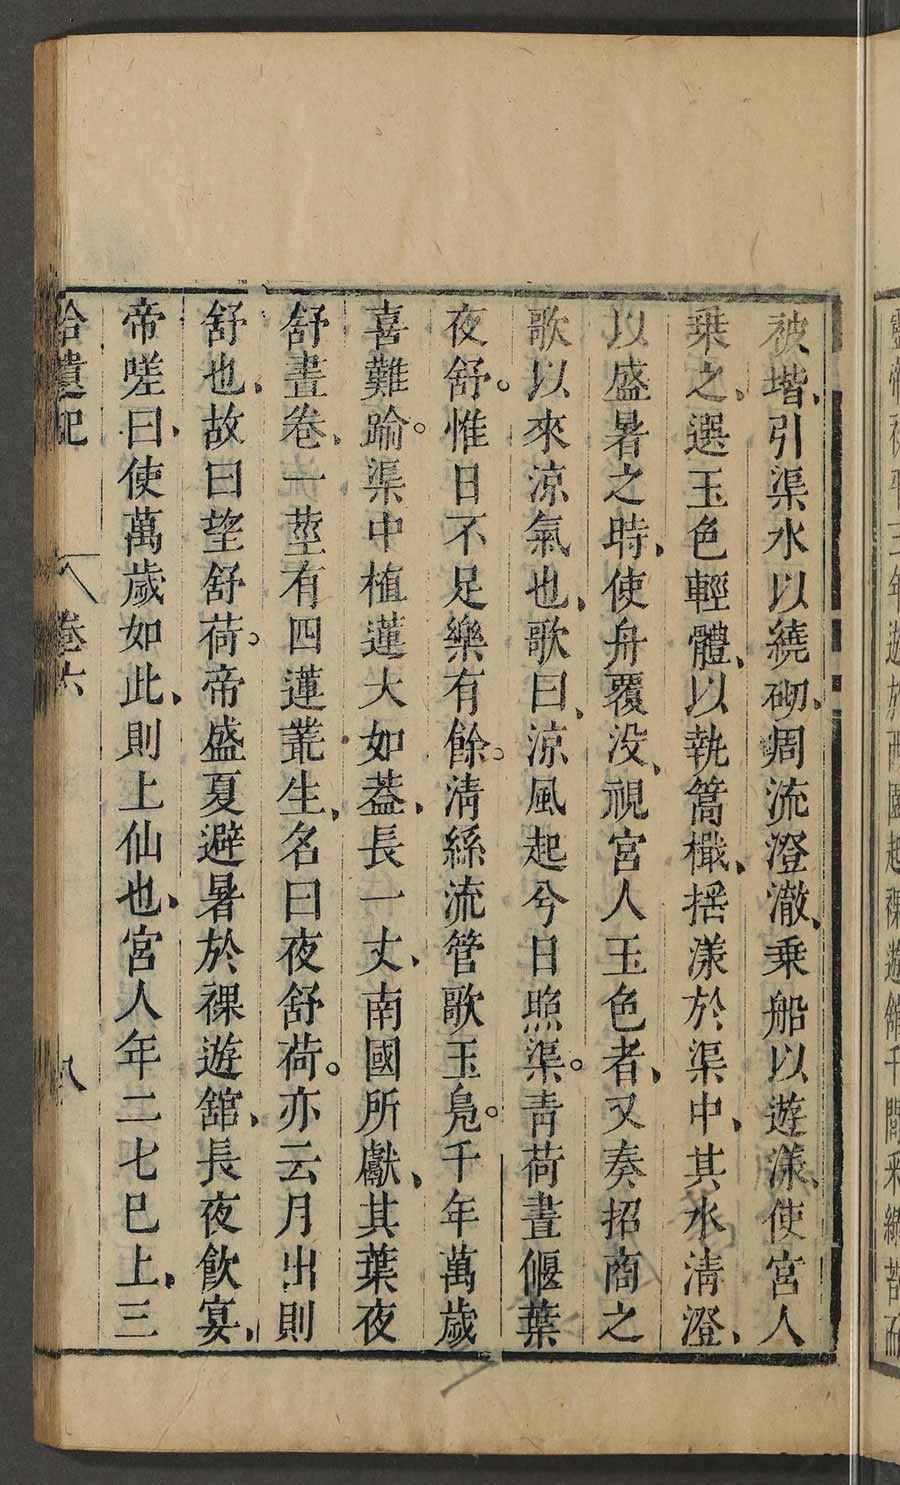 被堦、引渠水以繞砌、周流澄澈、乗船以遊漾、使宮人
乗之、選玉色輕體、以執篙檝、揺漾於渠中、其水清澄、
以盛暑之時、使舟覆没、視宮人玉色者、又奏招商之
歌以來涼氣也、歌曰、涼風起兮日照渠。青荷晝偃葉
夜舒。惟日不足樂有餘。清絲流管歌玉鳧。千年萬歲
喜難踰。渠中植蓮大如葢、長一丈、南國所獻、其葉夜
舒晝卷、一莖有四蓮叢生、名曰夜舒荷。亦云月出則
舒也、故曰望舒荷。帝盛夏避暑於裸遊舘、長夜飲宴、
帝嗟曰、使萬歲如此、則上仙也、宮人年二七巳上、三
拾遺記 卷六 八